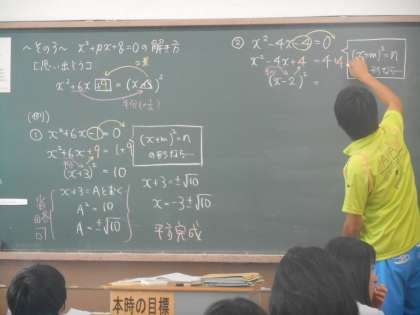 〜その3〜 x²+px+8=0の解き方
[思い出そう]
x²+6x+9=(x+3)²
半分
(例)
① x²+6x-1=0
x²+6x+9=1+9
(x+3)²=10
(x+m)²=n
の形なら…
x+3=Aとおく
A²=10
A=±√10
x+3=±√10
x=-3±√10
平方完成
② x²-4x-4=0
x²-4x+4=4+4
(x-2)²=
(x+m)²=n
の形なら…
本時の目標